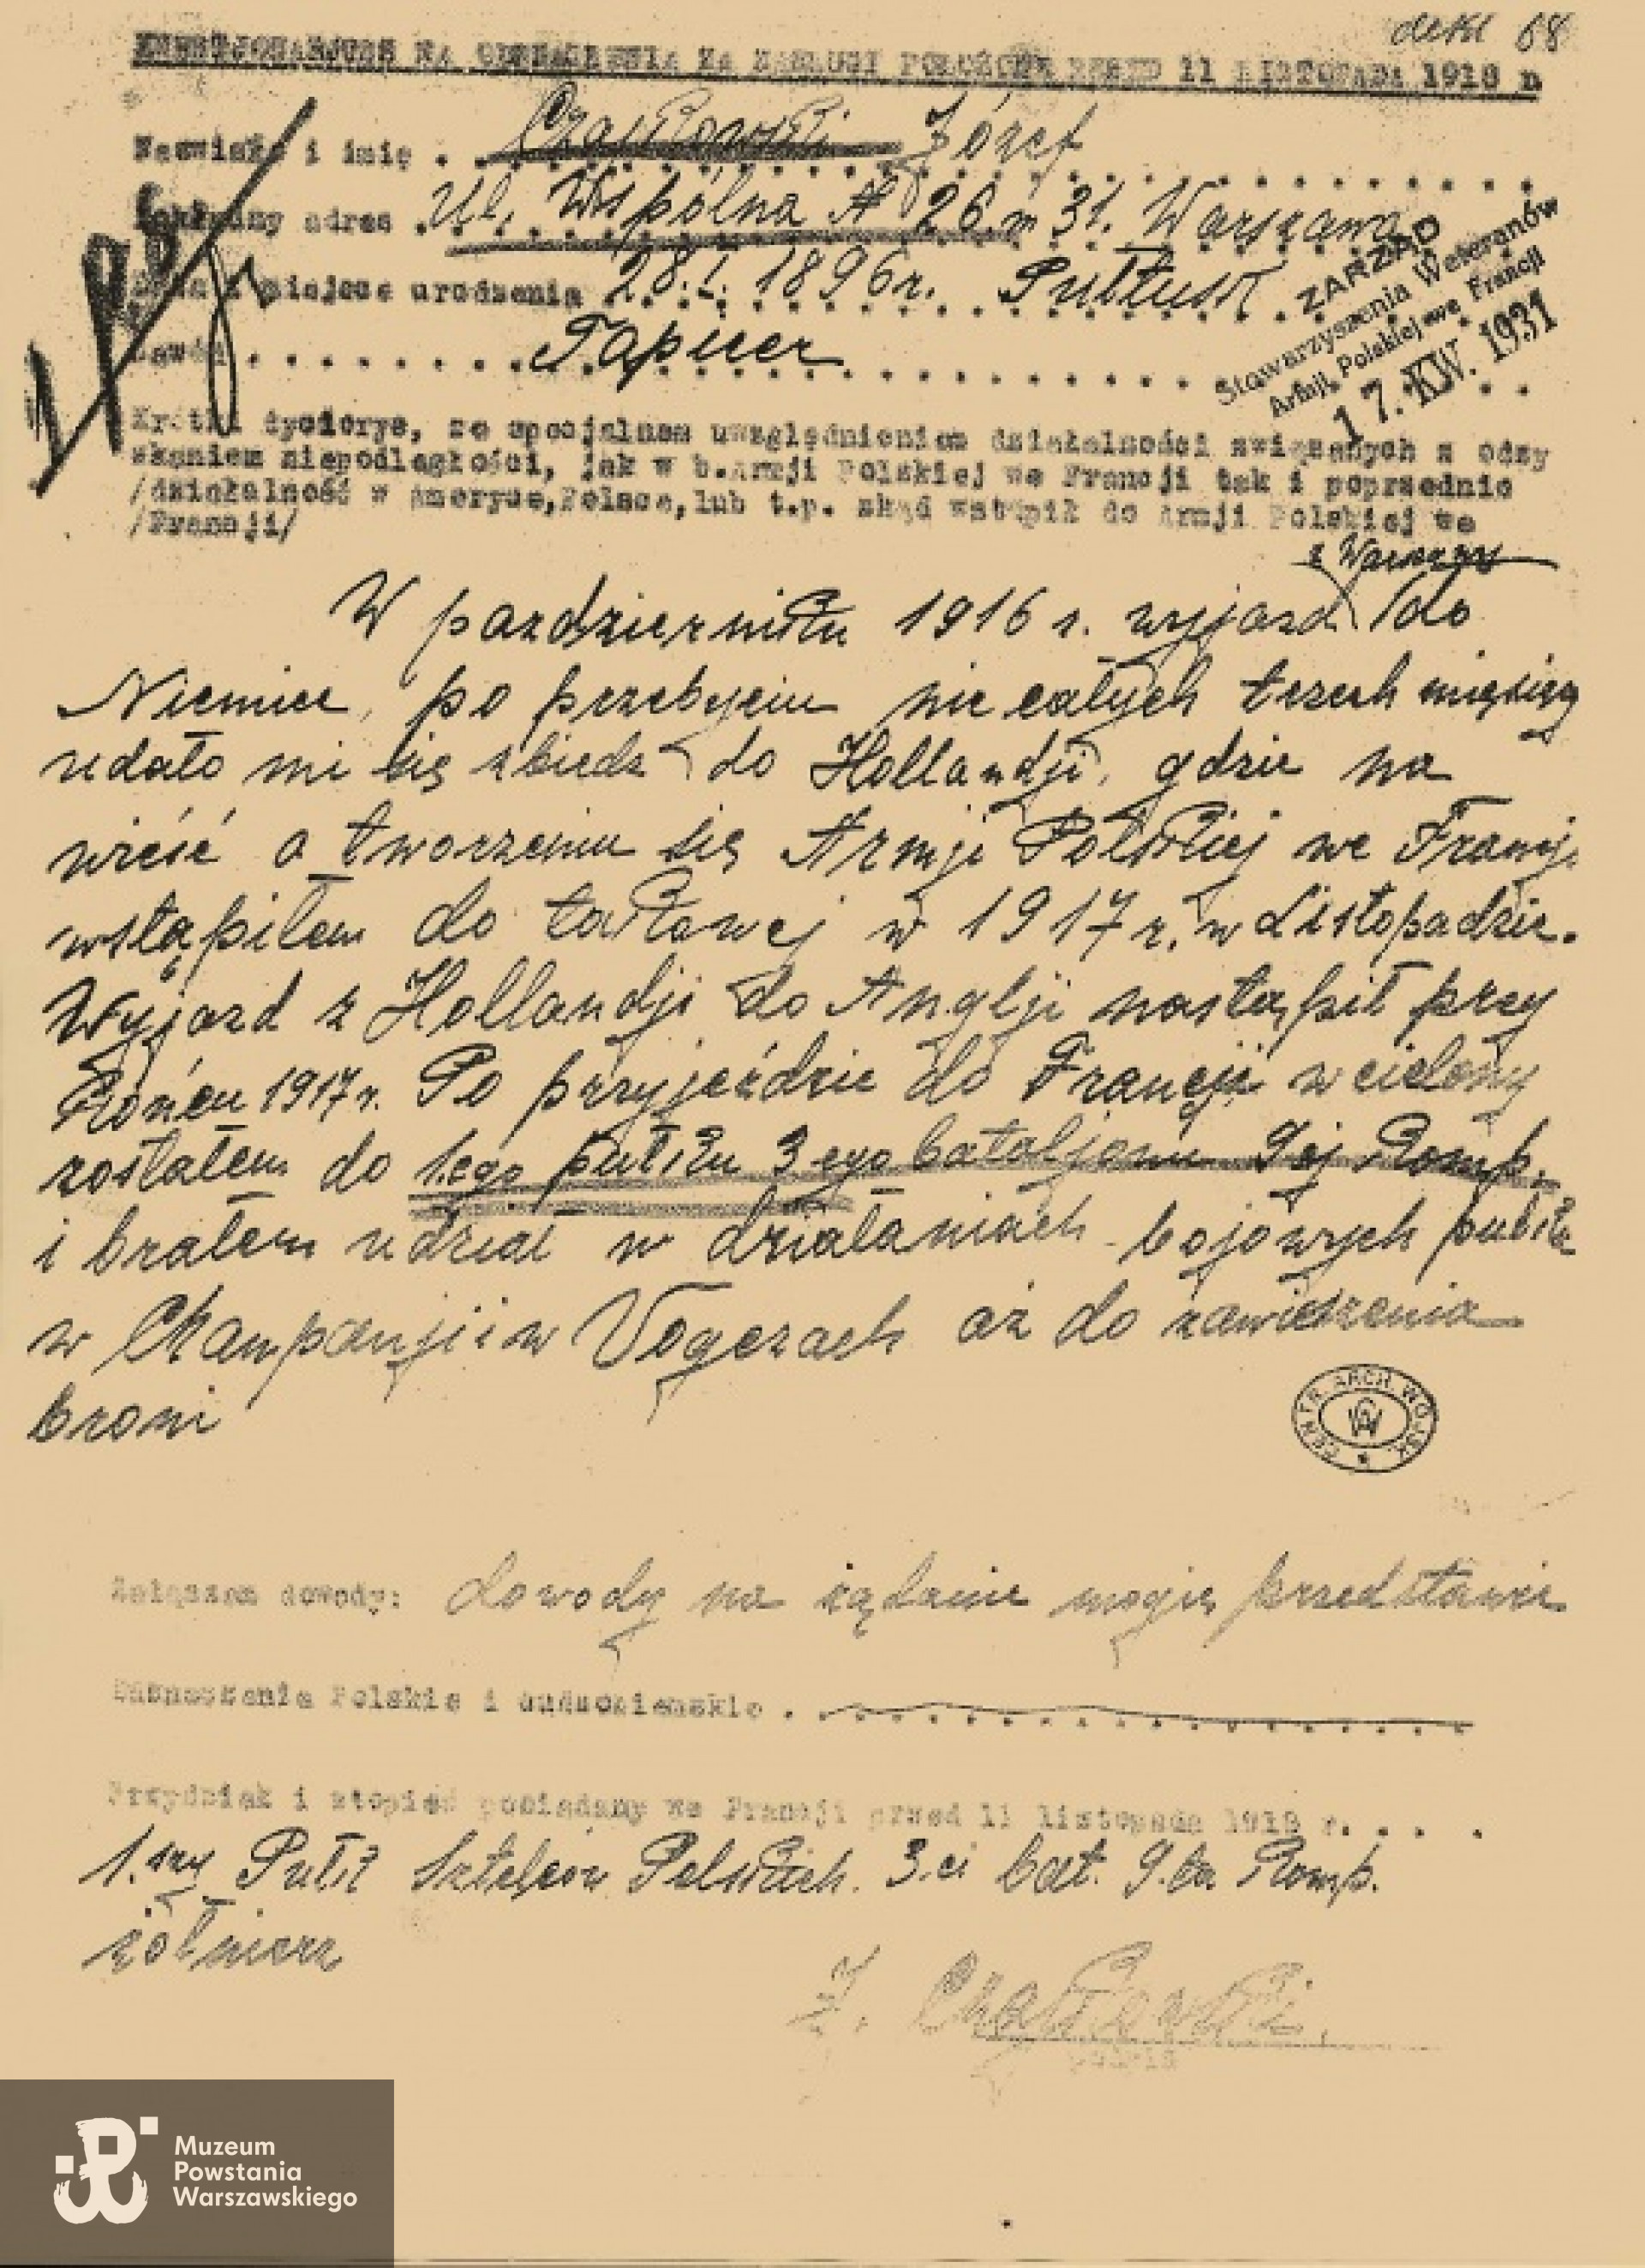 dekl 68
KWESTJONARJUSZ NA ODZNACZENIA ZA ZASŁUGI POŁOŻONE PRZED 11 LISTOPADA 1918 r.
Nazwisko i imię . Czajkowski Józef
Dokładny adres . Ul. Wspólna № 26 m 31. Warszawa
Data i miejsce urodzenia 28. I. 1896 r. Pułtusk
Zawód . . . . . . . . Tapicer
ZARZĄD
Stowarzyszenia Weteranów
Armji Polskiej we Francji
17. KW. 1931
Krótki życiorys, ze specjalnem uwzględnieniem działalności związanych z odzy
skaniem niepodległości, jak w b.Armji Polskiej we Francji tak i poprzednio
/działalność w Ameryce,Polsce,lub t.p. skąd wstąpił do Armji Polskiej we
/Francji/
z Warszawy
W pazdzierniku 1916 r. wyjazd do
Niemiec, po przebyciu nie całych trzech miesięcy
udało mi się zbiedz do Hollandji, gdzie na
wieść o tworzeniu się Armji Polskiej we Francji
wstąpiłem do takowej w 1917 r. w Listopadzie.
Wyjazd z Hollandji do Anglji nastąpił przy
końcu 1917 r. Po przyjeździe do Francji wcielony
zostałem do 1.ego pułku 3 ego bataljonu 9ej Komp.
i brałem udział w działaniach bojowych pułku
w Champanji i w Vogezach aż do zawieszenia
broni
CENTR. ARCH. WOJSK.
Załączam dowody: dowody na żądanie mogię przedstawić
Odznaczenia Polskie i cudzoziemskie .
Przydział i stopień posiadany we Francji przed 11 listopada 1918 r. . . .
1.szy Pułk Sztelców Polskich. 3.ci bat. 9.ta Komp.
żółnierz
J. Czajkowski.
podpis
Muzeum
Powstania
Warszawskiego